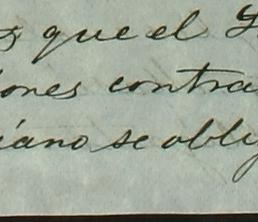 s que el
iones contra
iano se oblig